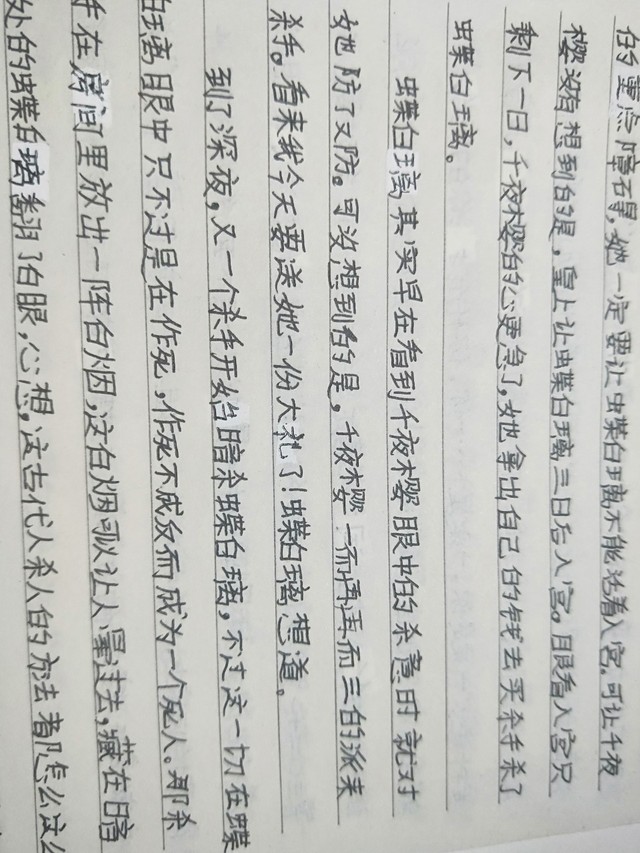 的重点障碍，她一定要让蝶白璃不能活着入宫。可让千夜
樱没想到的是，皇上让蝶白璃三日后入宫。眼看入宫只
剩下一日，千夜樱的心更急了，她拿出自己的钱去买杀手杀了
蝶白璃。
蝶白璃其实早在看到千夜樱眼中的杀意时就对
她防了又防。可没想到的是，千夜樱一而再再而三的派来
杀手。看来我今天要送她一份大礼了！蝶白璃想道。
到了深夜，又一个杀手开始暗杀蝶白璃，不过这一切在蝶
白璃眼中只不过是在作死，作死不成反而成为一个死人。那杀
手在房间里放出一阵白烟，这白烟可以让人晕过去，藏在暗
处的蝶白璃翻了白眼，心想，这古代人杀人的方法都怎么这么